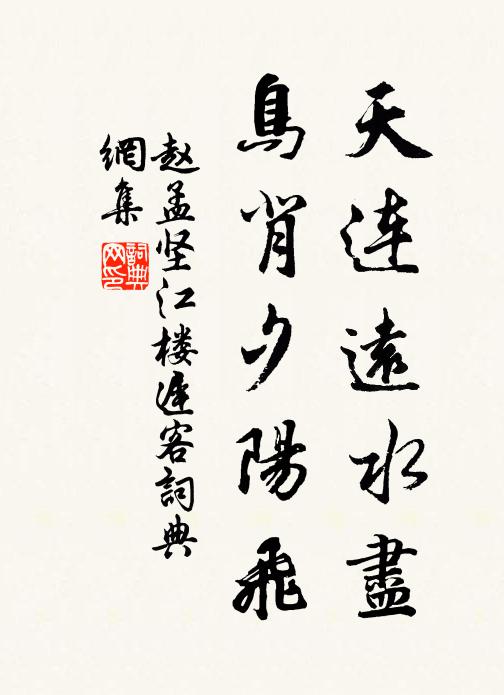 天连遠水盡
鳥背夕陽飛
赵孟坚江楼遲客詞典
網集
詞典
网印